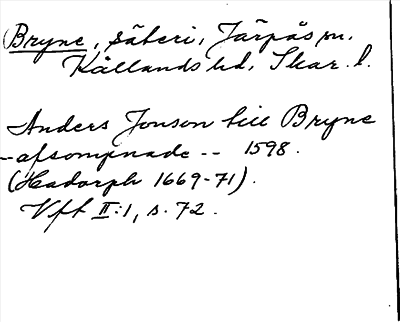 Bryne, säteri, Järpås sn.
Kållands hd, Skar. l.
Anders Jonson till Bryne
-- afsompnade -- 1598.
(Hadorph 1669-71).
Vft II:1, s. 72.